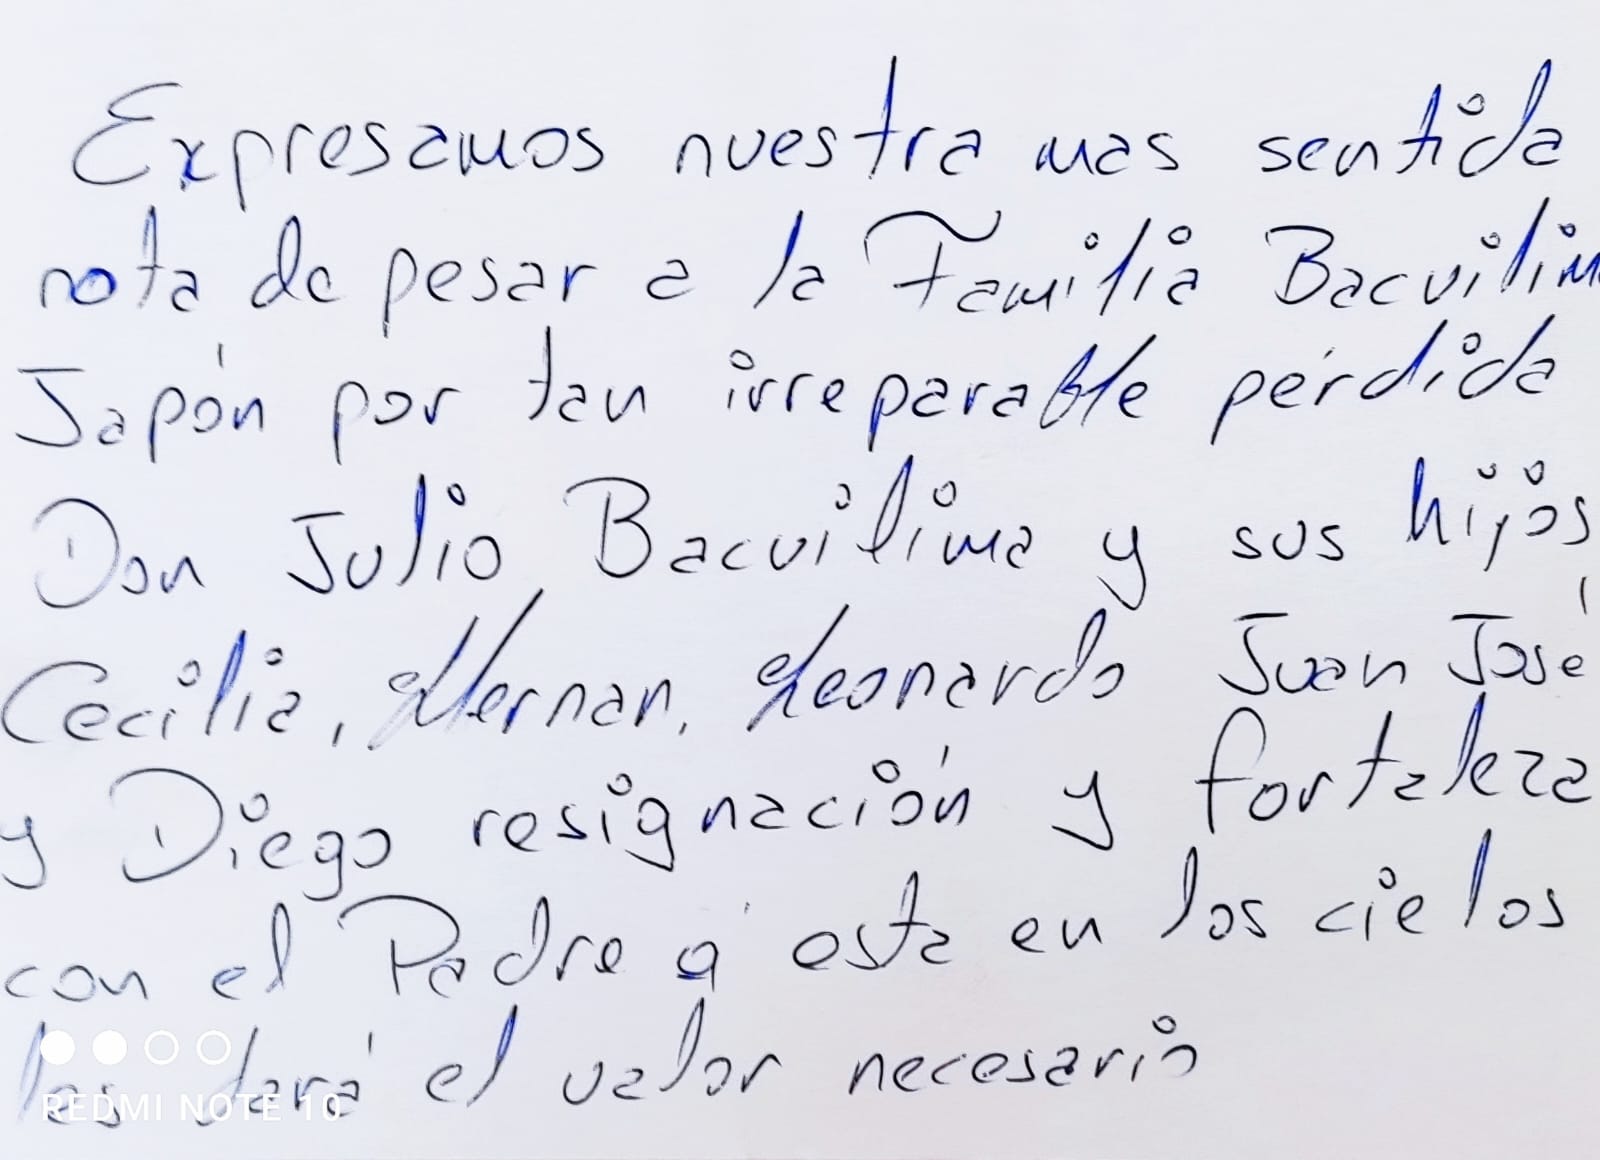 Expresamos nuestra mas sentida
nota de pesar a la Familia Bacuilim
Japón por tan irreparable pérdida
Don Julio Bacuilima y sus hijos
Cecilia, Hernan, Leonardo Juan José
y Diego resignación y fortaleza
con el Padre q' esta en los cielos
les dará el valor necesario
REDMI NOTE 10